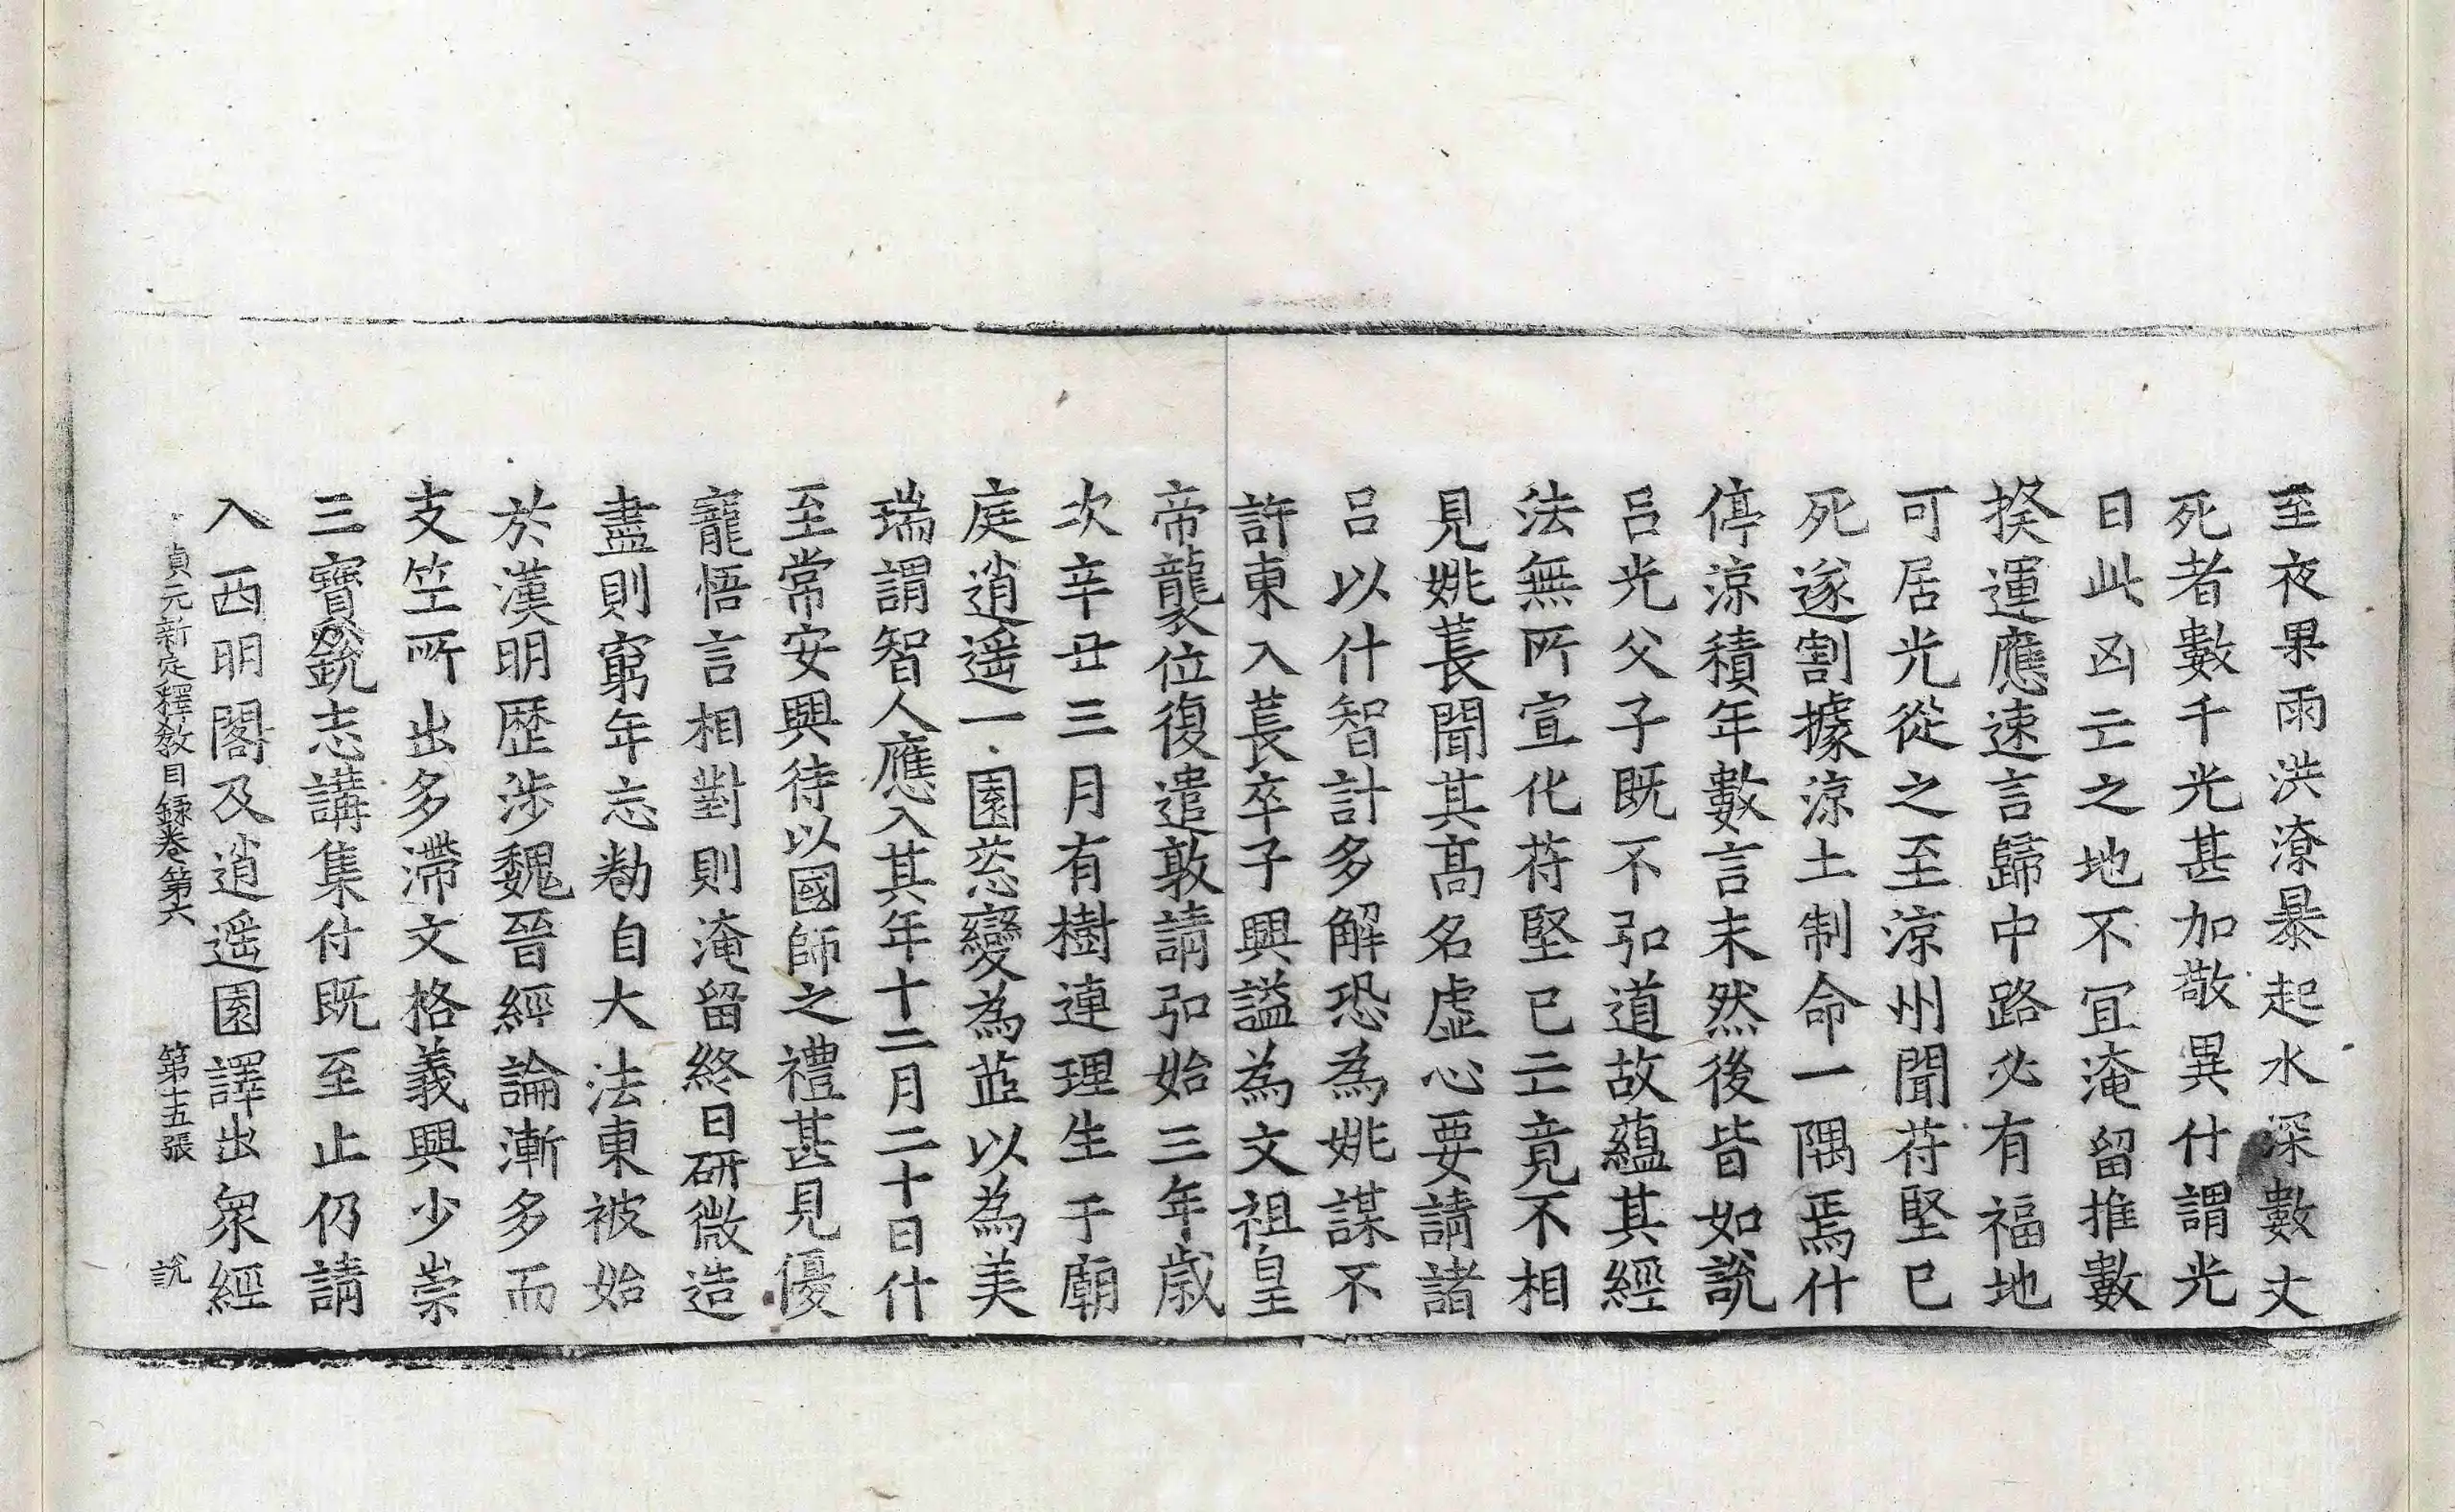 至夜果雨洪潦暴起水深數丈
死者數千光甚加敬異什謂光
曰此凶亡之地不冝淹留推數
揆運應速言歸中路必有福地
可居光從之至涼州聞苻堅已
死遂割據涼土制命一隅焉什
停涼積年數言未然後皆如說
呂光父子既不弘道故蘊其經
法無所宣化苻堅已亡竟不相
見姚萇聞其髙名虛心要請諸
呂以什智計多解恐為姚謀不
許東入萇卒子興謚為文祖皇
帝龍衣位復遣敦請弘始三年歲
次辛丑三月有樹連理生于廟
庭逍遥一園葱變為茝以為美
瑞謂智人應入其年十二月二十日什
至常安興待以國師之禮甚見優
寵悟言相對則淹留終日研微造
盡則窮年忘勌自大法東被始
於漢明歷涉魏晉經論漸多而
支竺所出多滯文格義興少崇
三寶銳志講集什既至止仍請
入西明閣及逍遥園譯出衆經
貞元新定釋教目録卷第六 第十五張 說